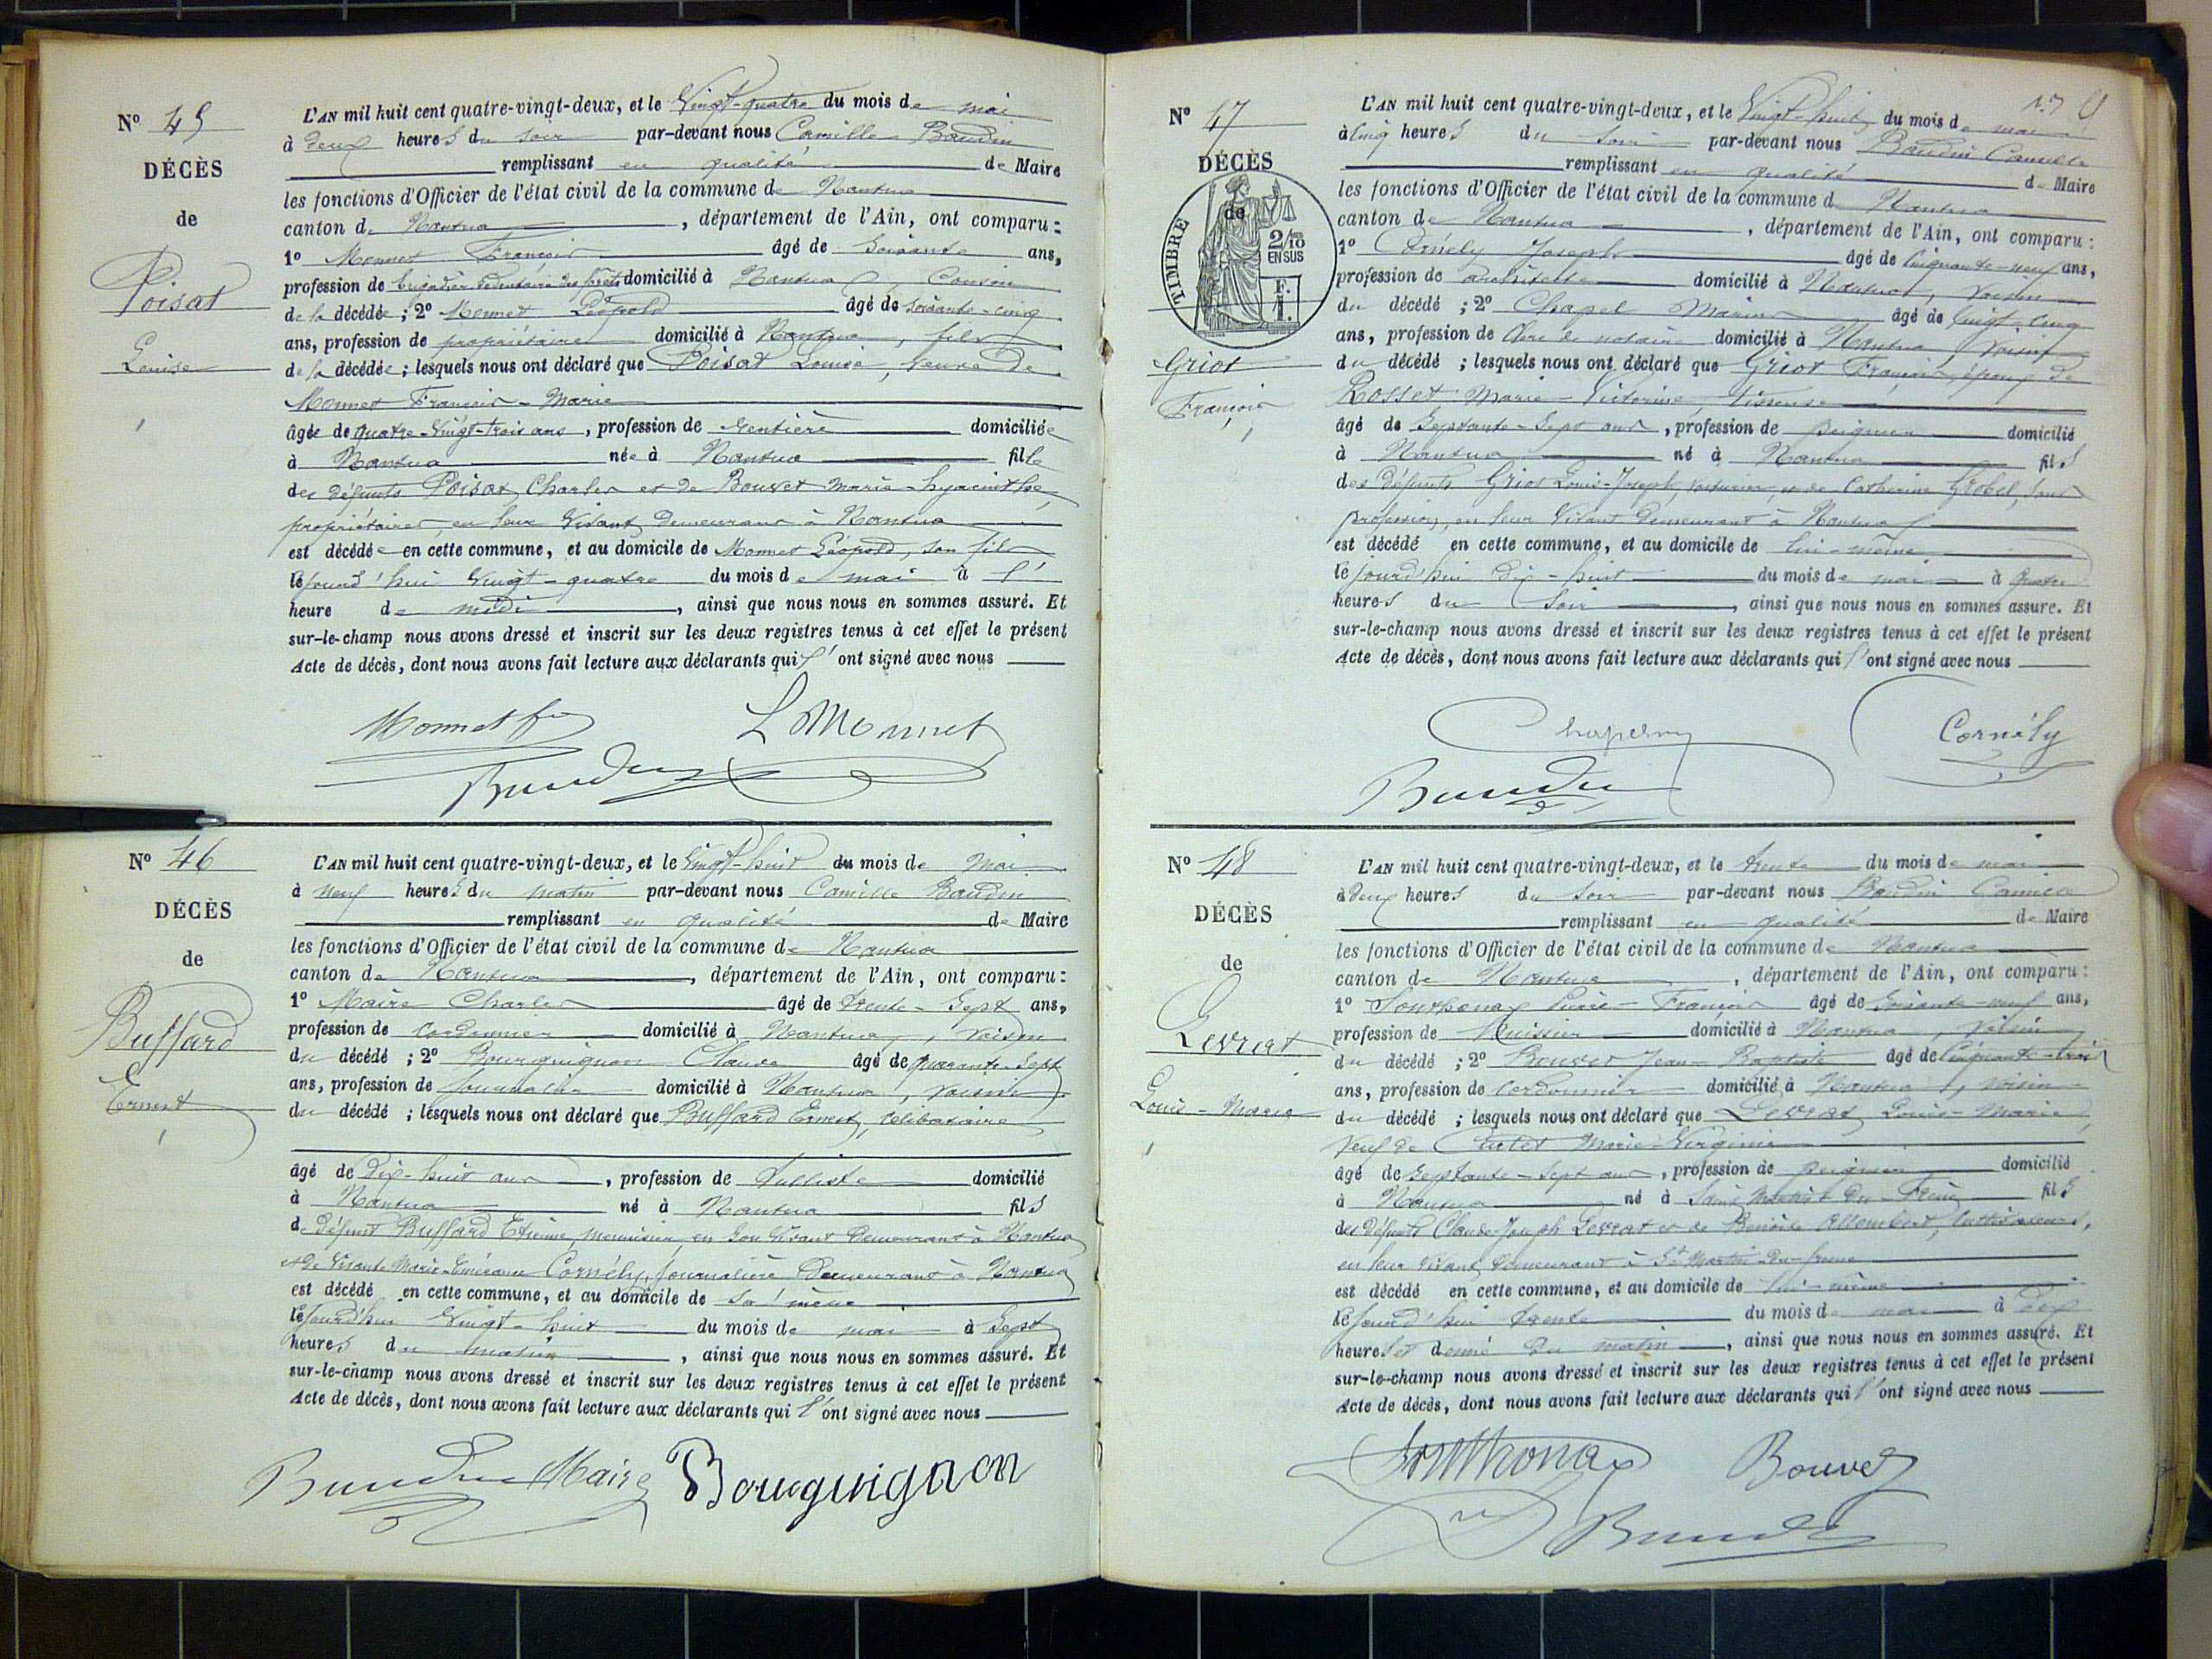 N° 45
DÉCÈS
de
Poisat
Louise
L'AN mil huit cent quatre-vingt-deux, et le Vingt-quatre du mois de mai
à deux heures du soir par-devant nous Camille Baudin
remplissant en qualité de Maire
les fonctions d'Officier de l'état civil de la commune de Nantua
canton de Nantua, département de l'Ain, ont comparu:
1° Monnet François âgé de soixante ans,
profession de brigadier sédentaire des forêts domicilié à Nantua, Cousin
de la décédée; 2° Monnet Léopold âgé de soixante-cinq
ans, profession de propriétaire domicilié à Nantua, fils
de la décédée; lesquels nous ont déclaré que Poisat Louise, veuve de
Monnet François-Marie
âgée de quatre-vingt-trois ans, profession de rentière domiciliée
à Nantua née à Nantua fille
des défunts Poisat Charles et de Bouvet Marie-hyacinthe,
propriétaires, en leur vivant demeurant à Nantua
est décédée en cette commune, et au domicile de Monnet Léopold, son fils
le jourd'hui vingt-quatre du mois de mai à l'
heure de midi, ainsi que nous nous en sommes assuré. Et
sur-le-champ nous avons dressé et inscrit sur les deux registres tenus à cet effet le présent
Acte de décès, dont nous avons fait lecture aux déclarants qui l'ont signé avec nous
Monnet fs L Monnet
Baudin
N° 46
DÉCÈS
de
Buffard
Ernest
L'AN mil huit cent quatre-vingt-deux, et le Vingt-huit du mois de Mai
à neuf heures du matin par-devant nous Camille Baudin
remplissant en qualité de Maire
les fonctions d'Officier de l'état civil de la commune de Nantua
canton de Nantua, département de l'Ain, ont comparu:
1° Maire Charles âgé de trente-sept ans,
profession de cordonnier domicilié à Nantua, voisin
du décédé; 2° Bourguignon Claude âgé de quarante-sept
ans, profession de journalier domicilié à Nantua, voisin
du décédé; lesquels nous ont déclaré que Buffard Ernest, célibataire
âgé de dix-huit ans, profession de tulliste domicilié
à Nantua né à Nantua fils
de défunt Buffard Etienne, menuisier, en son vivant demeurant à Nantua
et de vivante Marie-Emérance Cornély, journalière demeurant à Nantua
est décédé en cette commune, et au domicile de sa mère
le jourd'hui vingt-huit du mois de mai à sept
heures du matin, ainsi que nous nous en sommes assuré. Et
sur-le-champ nous avons dressé et inscrit sur les deux registres tenus à cet effet le présent
Acte de décès, dont nous avons fait lecture aux déclarants qui l'ont signé avec nous
Baudin Maire Bourguignon
N° 47
DÉCÈS
de
TIMBRE
2/10
EN SUS
F.
1.
Griot
François
L'AN mil huit cent quatre-vingt-deux, et le Vingt-huit du mois de mai
à cinq heures du soir par-devant nous Baudin Camille
remplissant en qualité de Maire
les fonctions d'Officier de l'état civil de la commune de Nantua
canton de Nantua, département de l'Ain, ont comparu:
1° Cornély Joseph âgé de cinquante-neuf ans,
profession de architecte domicilié à Nantua, voisin
du décédé; 2° Chapel Marius âgé de vingt-cinq
ans, profession de Clerc de notaire domicilié à Nantua, voisin
du décédé; lesquels nous ont déclaré que Griot François, époux de
Rosset Marie-Victorine, tisseuse
âgé de septante-sept ans, profession de peigneur domicilié
à Nantua né à Nantua fils
des défunts Griot Louis-Joseph, voiturier, et de Catherine Grobel, sans
profession, en leur vivant demeurant à Nantua
est décédé en cette commune, et au domicile de lui-même
le jourd'hui dix-huit du mois de mai à quatre
heures du soir, ainsi que nous nous en sommes assuré. Et
sur-le-champ nous avons dressé et inscrit sur les deux registres tenus à cet effet le présent
Acte de décès, dont nous avons fait lecture aux déclarants qui l'ont signé avec nous
Cornély
Baudin
N° 48
DÉCÈS
de
Levrat
Louis-Marie
L'AN mil huit cent quatre-vingt-deux, et le trente du mois de mai
à deux heures du soir par-devant nous Baudin Camille
remplissant en qualité de Maire
les fonctions d'Officier de l'état civil de la commune de Nantua
canton de Nantua, département de l'Ain, ont comparu:
1° Sonthonax Pierre-François âgé de soixante-neuf ans,
profession de Huissier domicilié à Nantua, voisin
du décédé; 2° Bouvet Jean-Baptiste âgé de cinquante-trois
ans, profession de cordonnier domicilié à Nantua, voisin
du décédé; lesquels nous ont déclaré que Levrat Louis-Marie,
veuf de Marie-Virginie
âgé de septante-sept ans, profession de peigneur domicilié
à Nantua né à Saint Martin du-Frêne fils
des défunts Claude-Joseph Levrat et de Benoîte Allombert, cultivateurs,
en leur vivant demeurant à St Martin-du-frêne
est décédé en cette commune, et au domicile de lui-même
le jourd'hui trente du mois de mai à dix
heures et demie du matin, ainsi que nous nous en sommes assuré. Et
sur-le-champ nous avons dressé et inscrit sur les deux registres tenus à cet effet le présent
Acte de décès, dont nous avons fait lecture aux déclarants qui l'ont signé avec nous
Sonthonax Bouvet
Baudin